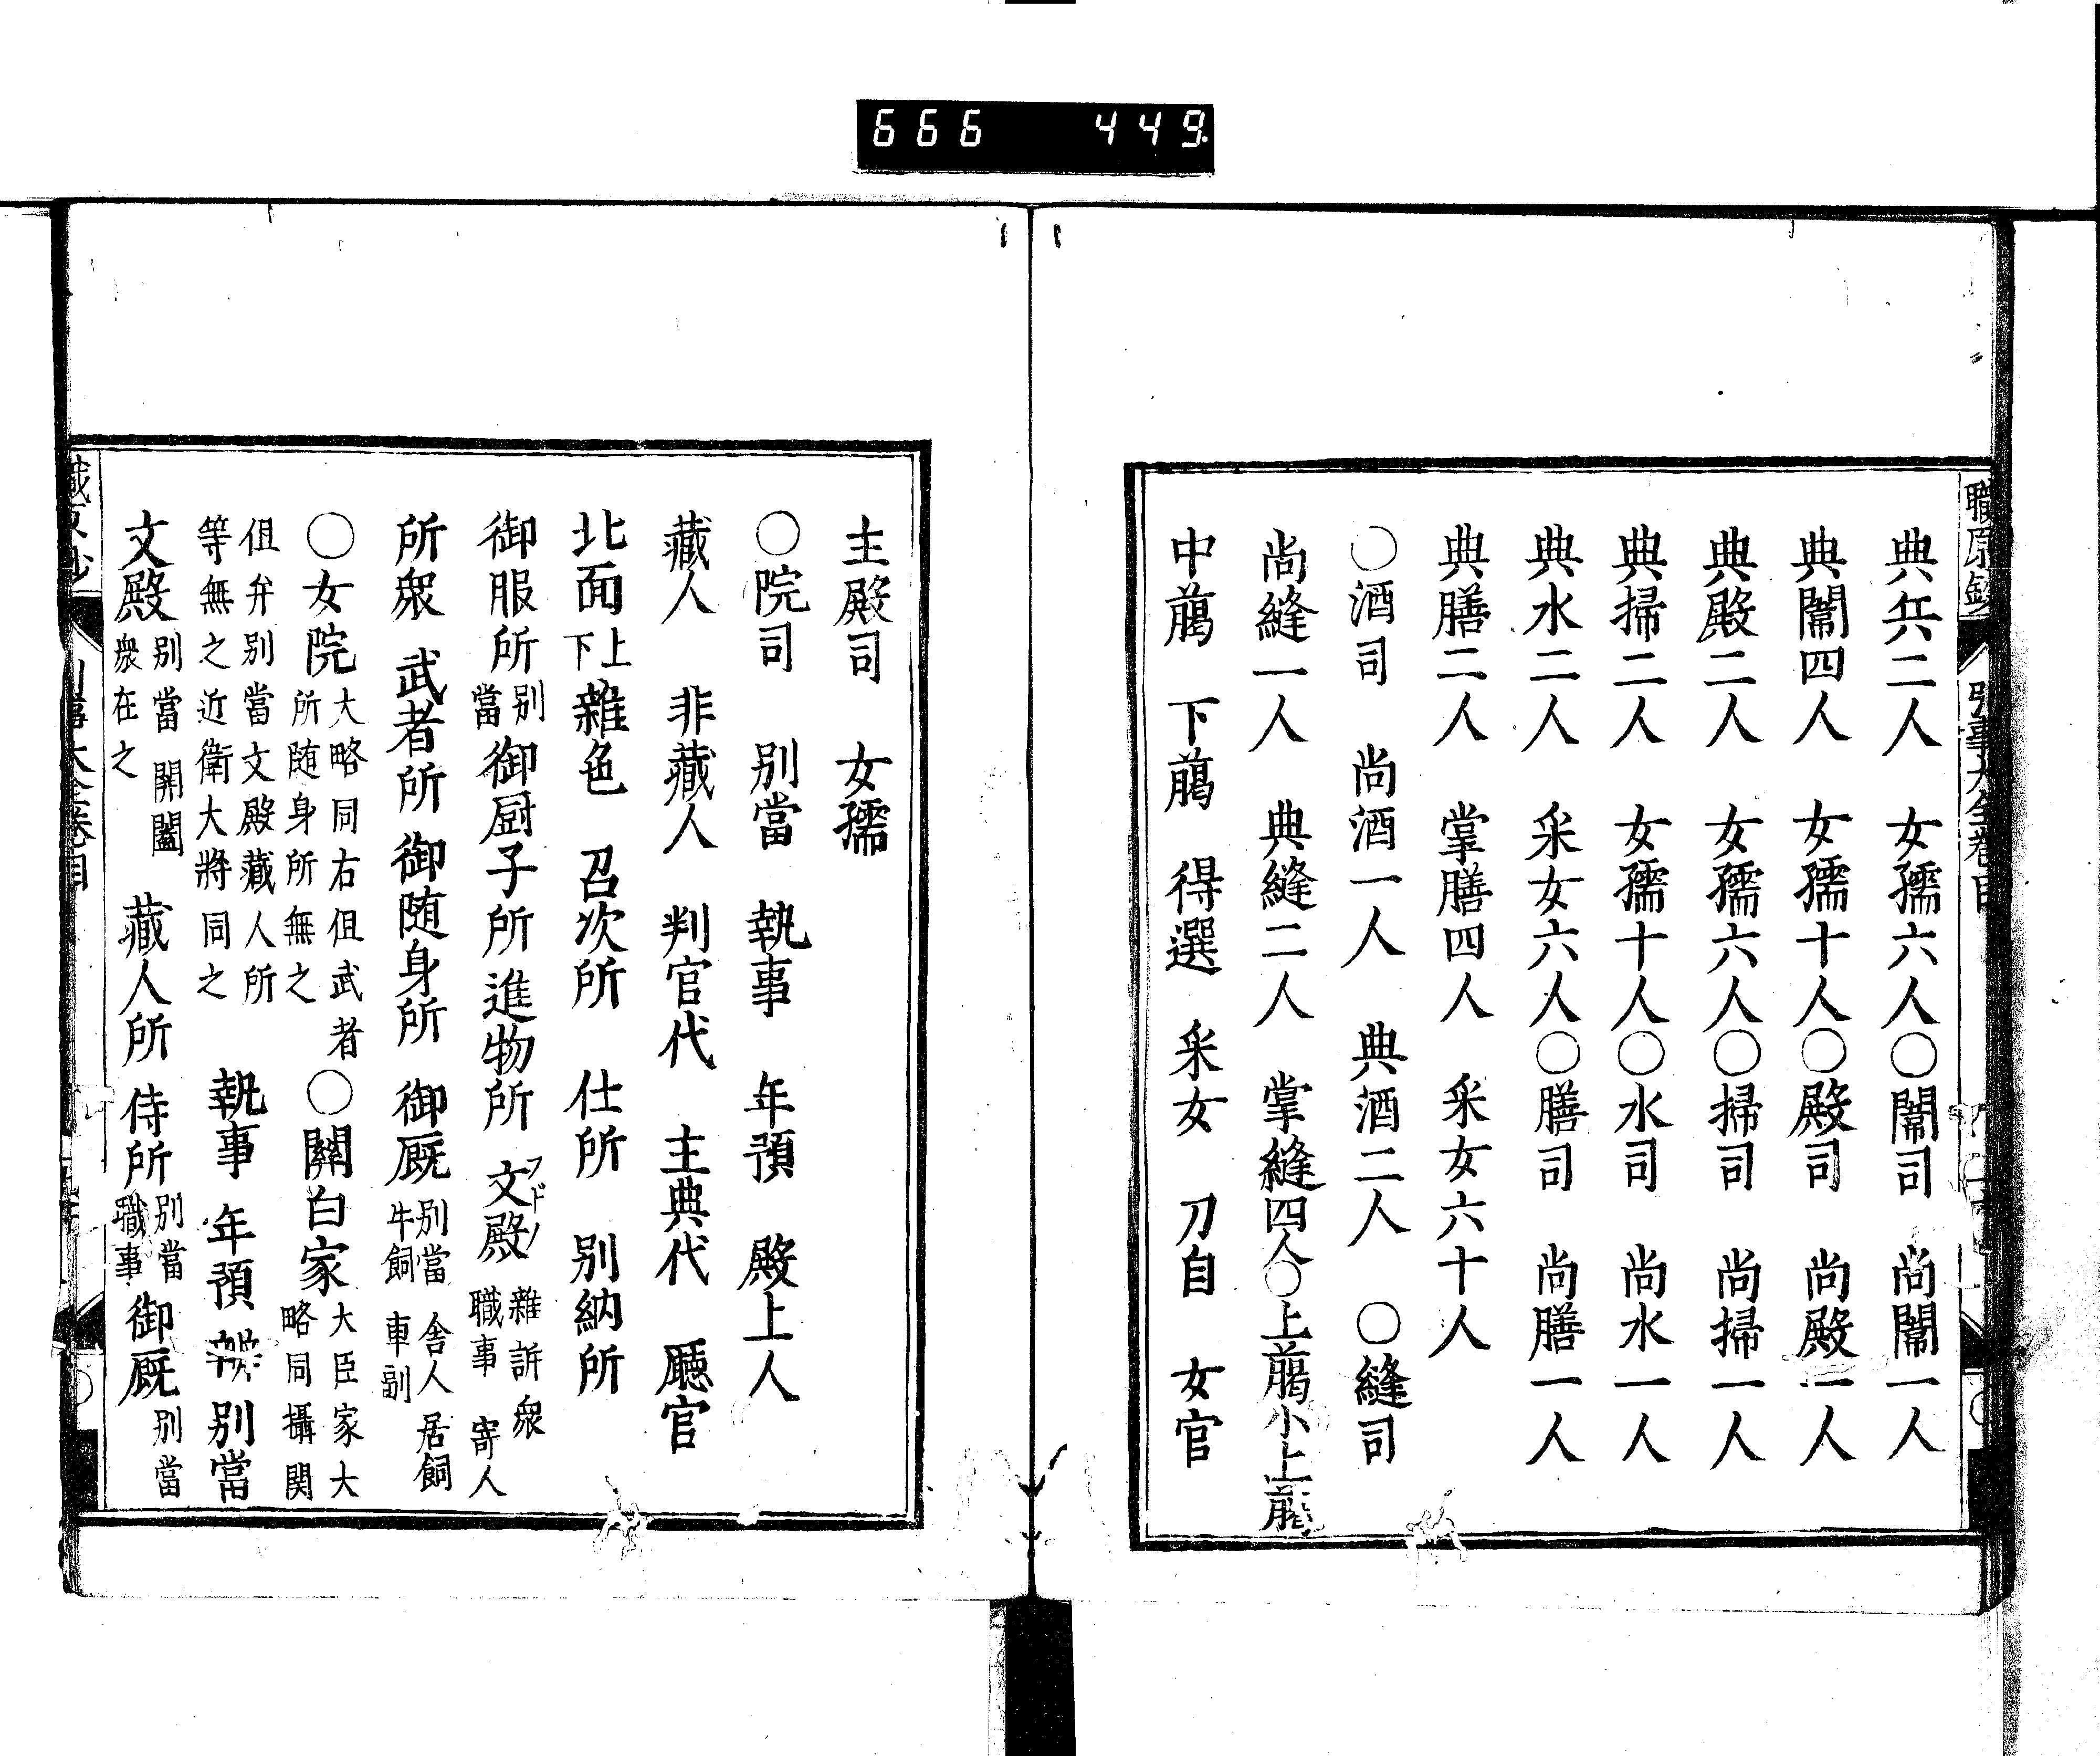 666 449
職原鈔 引事大全卷目
典兵二人 女孺六人〇闈司 尚闈一人
典闈四人 女孺十人〇殿司 尚殿一人
典殿二人 女孺六人〇掃司 尚掃一人
典掃二人 女孺十人〇水司 尚水一人
典水二人 采女六人〇膳司 尚膳一人
典膳二人 掌膳四人 采女六十人
〇酒司 尚酒一人 典酒二人 〇縫司
尚縫一人 典縫二人 掌縫四人〇上﨟小上﨟
中﨟 下﨟 得選 采女 刀自 女官
主殿司 女孺
〇院司 別當 執事 年預 殿上人
藏人 非藏人 判官代 主典代 廳官
北面上下 雜色 召次所 仕所 別納所
御服所別當 御厨子所 進物所 文殿フドノ 雜訴衆職事 寄人
所衆 武者所 御随身所 御厩別當 舎人 居飼牛飼 車副
〇女院大略同右但武者所随身所無之 〇關白家大臣家大略同攝関
但弁別當文殿藏人所等無之近衛大將同之 執事 年預 辨別當
文殿別當 開闔衆在之 藏人所 侍所別當職事 御厩別當